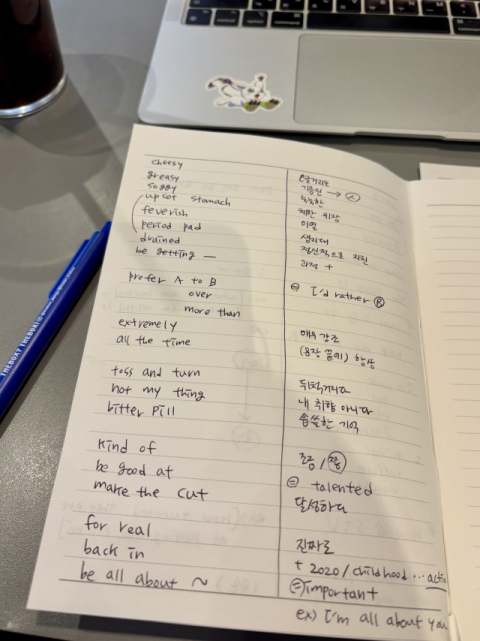 cheesy 느글거리는
greasy 기름진 → ㅅ
soggy 눅눅한
upset stomach 체한 위장
feverish 미열
period pad 생리대
drained 정신적으로 지친
be getting — 과정 +
prefer A to B ⊜ I'd rather Ⓑ
over
more than
extremely 매우 강조
all the time (문장 끝에) 항상
toss and turn 뒤척거리다
not my thing 내 취향 아니다
bitter pill 씁쓸한 기억
kind of 조금 / 쫌
be good at ⊜ talented
make the cut 달성하다
for real 진짜로
back in + 2020 / childhood ...
be all about ~ ⊜ important
ex) I'm all about you
THEBOX? THEBOX